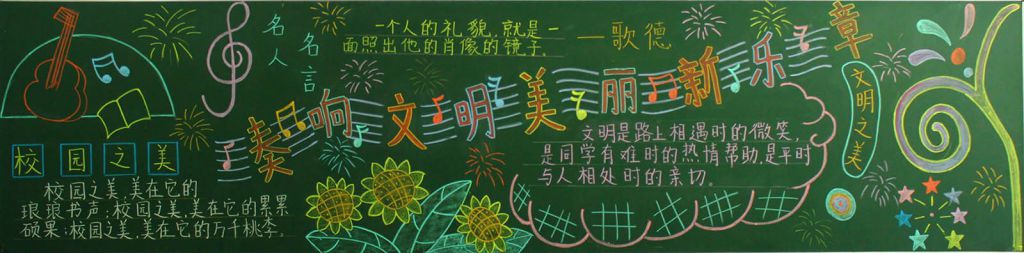 名人
名言
一个人的礼貌,就是一
面照出他的肖像的镜子。
——歌德
奏响文明美丽新乐章
校园之美
校园之美,美在它的
琅琅书声;校园之美,美在它的累累
硕果;校园之美,美在它的万千桃李。
文明是路上相遇时的微笑,
是同学有难时的热情帮助,是平时
与人相处时的亲切。
文明之美